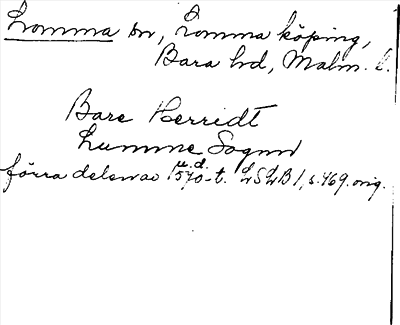 Lomma sn, Lomma köping,
Bara hd, Malm. l.
Bare Herridt
Lumme Sognn
u.d.
förra delen av 1570-t. LSLB 1, s. 469. orig.